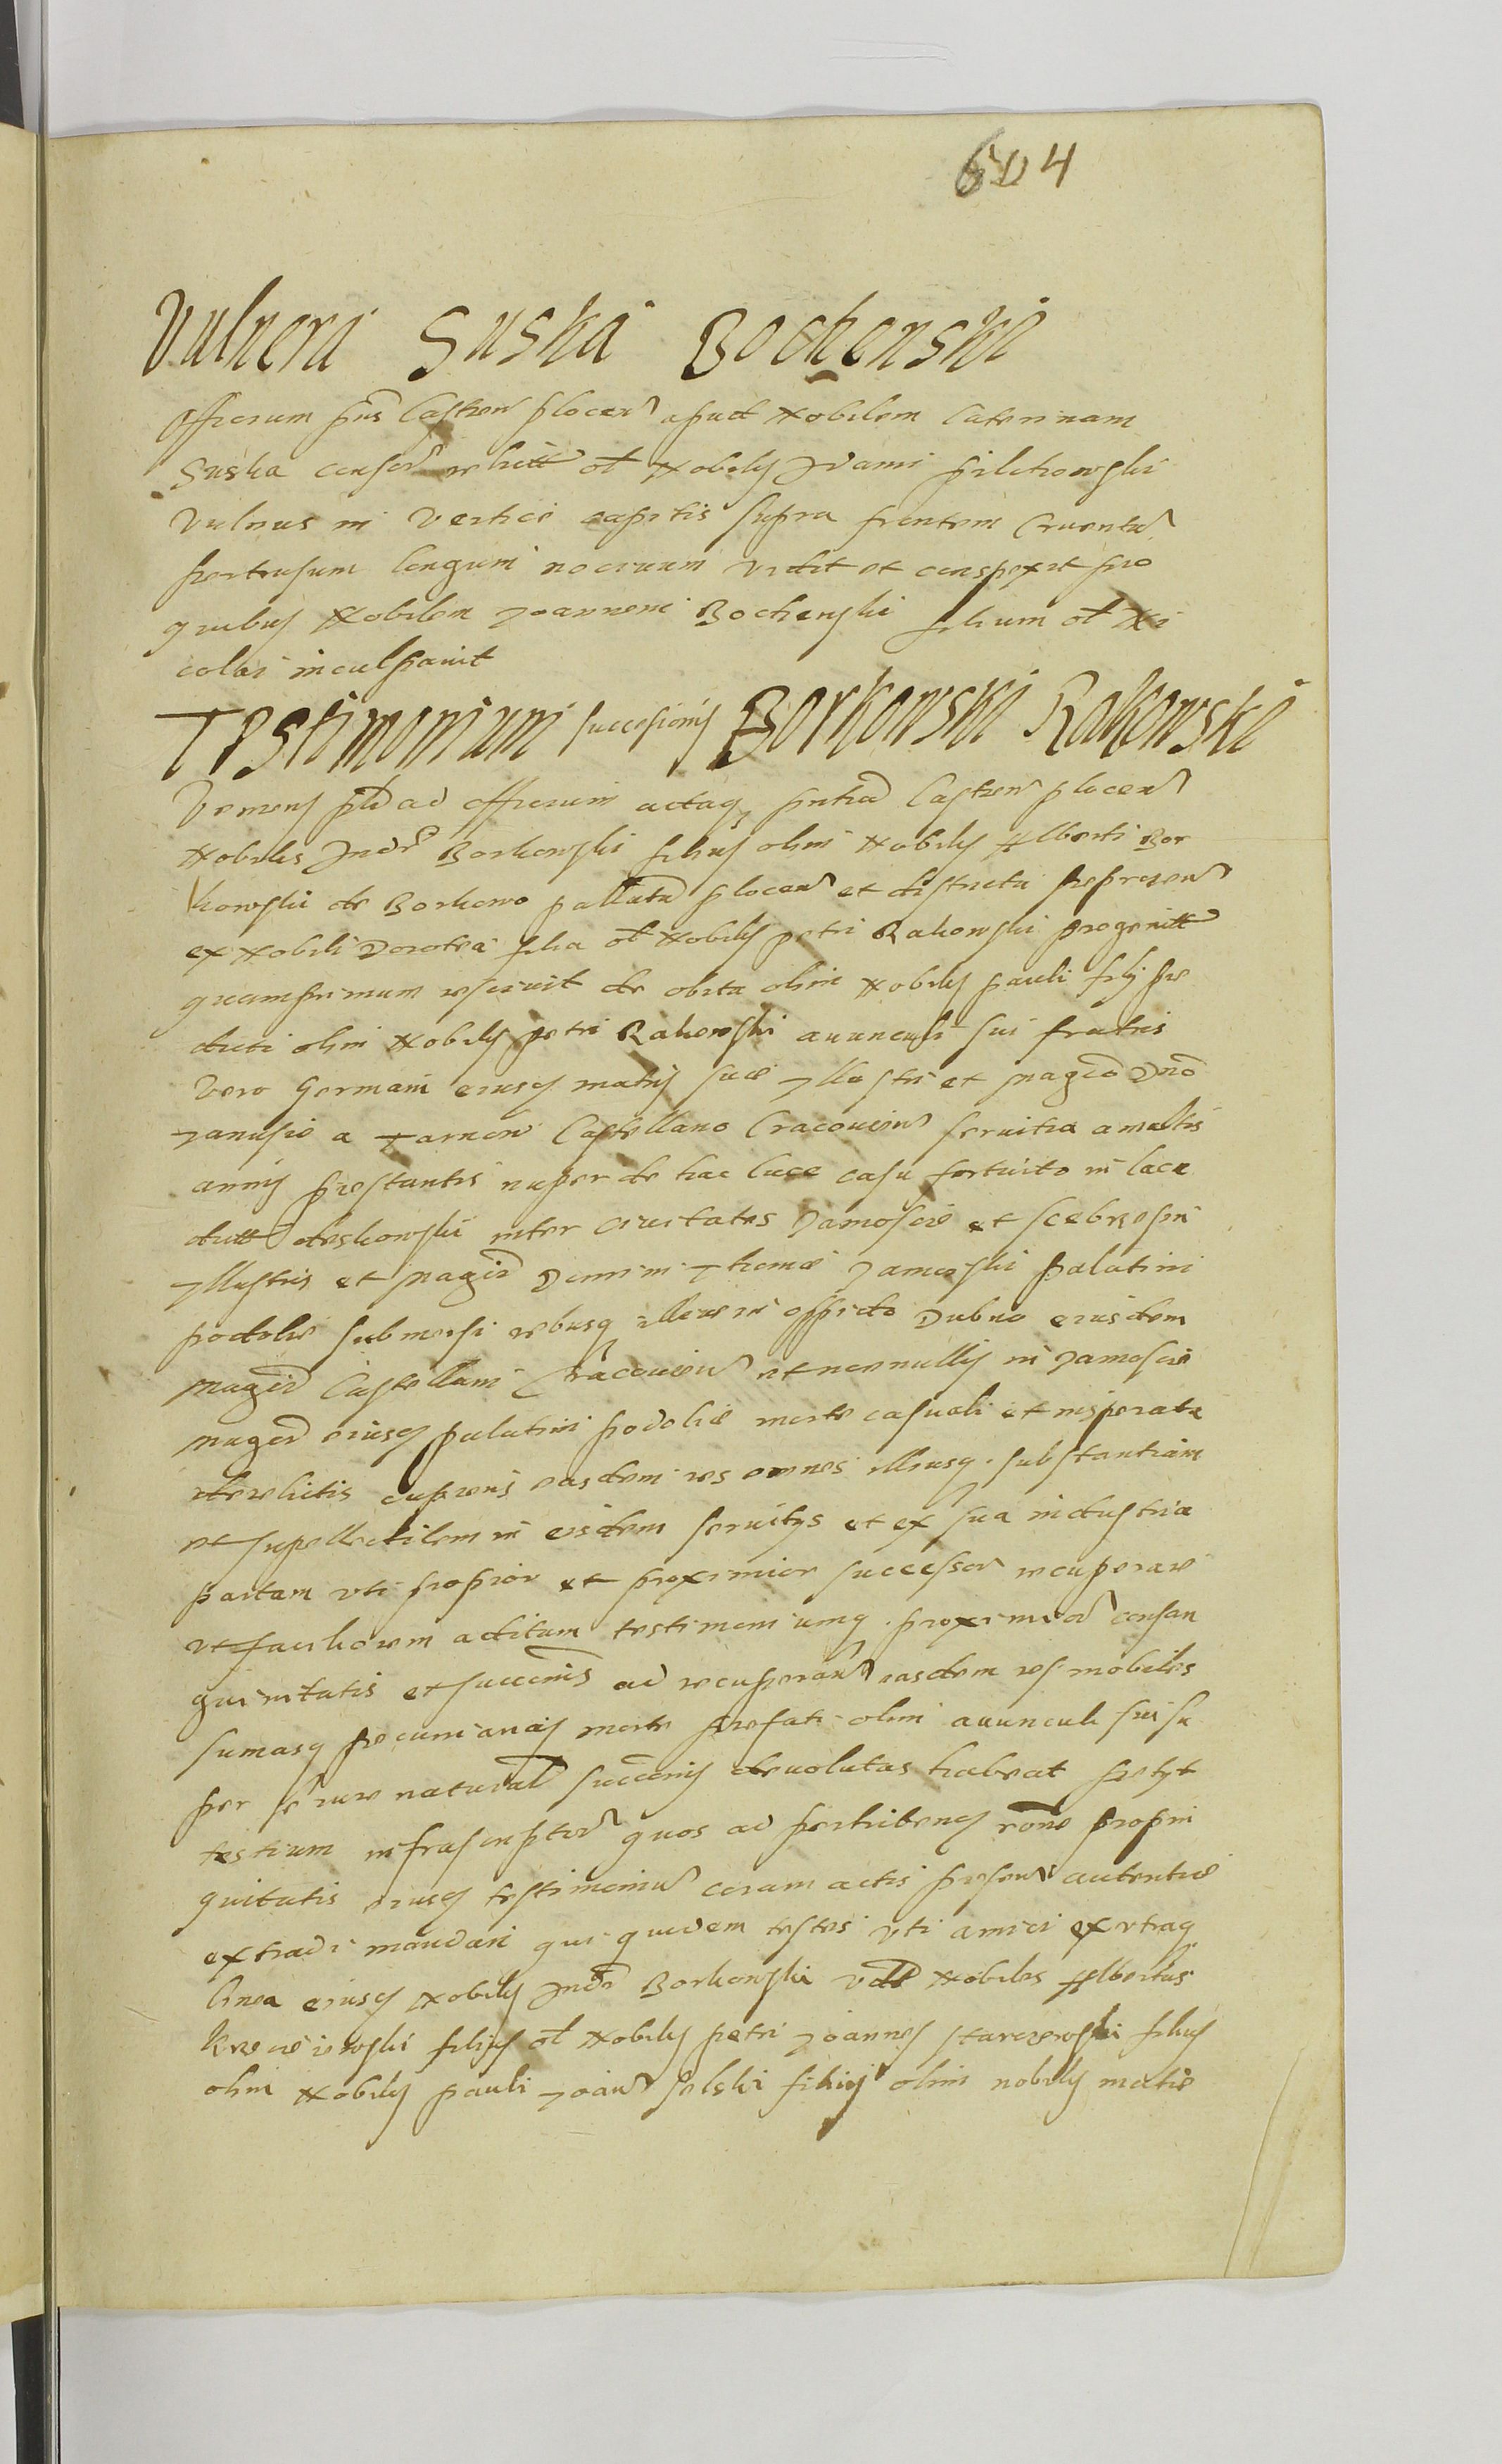 604
Vulnera Suska Bochenski
Officium pns Castren plocen apud Nobilem Caterinam
Suska consor relictt ol Nobilis Adami pilchowski
vulnus in vertice capitis supra frontem cruentu
pertusum longum nocivum vidit et conspexit pro
quibus Nobilem Joannem Bochenski filium ol Ni
colai inculpavit
Testimonium successionis Borkowski Rakowski
Veniens ad officium actaq Castren plocen
Nobilis Andr Borkowski filius olim Nobilis Alberti Bor
kowski de Borkowo pallatu plocen et districtu
ex Nobili Dorothea filia ol Nobilis petri Rakowski progenitt
quamprimum rescivit de obitu olim Nobilis pauli filij pre
dicti olim Nobilis petri Rakowski avunculi sui fratris
vero Germani eiusq matris sue Illustri et magco Dno
Janusio a Tarnow Castellano Cracovien servitia a multis
annis prestantis nuper de hac luce casu fortuito in lacu
dictt inter civitates Zamoscie et Scebrzesin
Illustris et magci Domini Thome Zamoiski palatini
podolie submersi rebusq illius in oppido Dubno eiusdem
magci Castellani Cracovien et nonnullis in Zamoscie
magci eiusq palatini podolie morte casuali et insperata
derelictis cupiens easdem res omnes illiusq substantiam
et supellectilem in eisdem servitijs et ex sua industria
partam uti propior et proximior successor recuperare
ut faciliorem aditum testimoniumq proximior consan
guinitatis et succonis ad recuperan easdem res mobiles
sumasq pecuniarias morte prefati olim avunculi sui su
per se iure naturali succonis devolutas habeat petijt
testium infrascriptor quos ad perhibens rone propin
quitatis eiusq testimoniu coram actis presen autentice
extradi mandari qui quidem testes uti amici ex utraq
linea eiusq Nobilis Andr Borkowski Nobiles Albertus
filius ol Nobilis petri Joannes filius
olim Nobilis pauli Joan filius olim nobilis